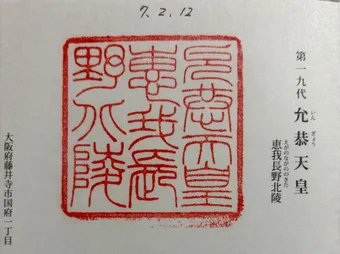 7.2.12
第一九代 允恭天皇
いんぎょう
恵我長野北陵
えがのながののきた
允恭天皇
惠我長
野北陵
大阪府藤井寺市国府一丁目